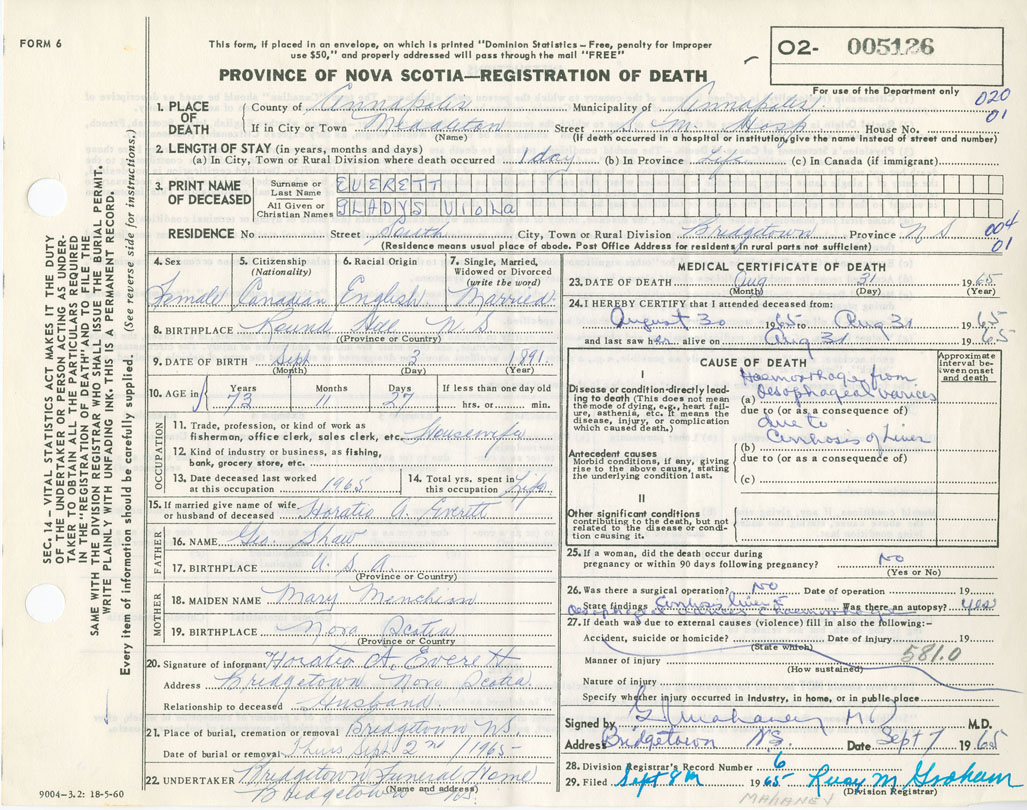 FORM 6
This form, if placed in an envelope, on which is printed "Dominion Statistics – Free, penalty for improper
use $50," and properly addressed will pass through the mail "FREE"
PROVINCE OF NOVA SCOTIA—REGISTRATION OF DEATH
O2- 005126
For use of the Department only
020
01
1. PLACE OF DEATH
County of Annapolis Municipality of Annapolis
If in City or Town Middleton Street S. M. Hosp House No.
(Name) (If death occurred in a hospital or institution, give the name instead of street and number)
2. LENGTH OF STAY (in years, months and days)
(a) In City, Town or Rural Division where death occurred 1 day (b) In Province Life (c) In Canada (if immigrant)
3. PRINT NAME OF DECEASED
Surname or Last Name EVERETT
All Given or Christian Names GLADYS VIOLA
RESIDENCE No Street South City, Town or Rural Division Bridgetown Province N S
004
01
(Residence means usual place of abode. Post Office Address for residents in rural parts not sufficient)
4. Sex
Female
5. Citizenship
(Nationality)
Canadian
6. Racial Origin
English
7. Single, Married,
Widowed or Divorced
(write the word)
Married
8. BIRTHPLACE Round Hill N. S
(Province or Country)
9. DATE OF BIRTH Sept 3 1891
(Month) (Day) (Year)
10. AGE in
Years Months Days If less than one day old
73 11 27 hrs. or min.
OCCUPATION
11. Trade, profession, or kind of work as
fisherman, office clerk, sales clerk, etc. Housewife
12. Kind of industry or business, as fishing,
bank, grocery store, etc.
13. Date deceased last worked
at this occupation 1965
14. Total yrs. spent in
this occupation Life
15. If married give name of wife
or husband of deceased Horatio A. Everett
FATHER
16. NAME Geo. Shaw
17. BIRTHPLACE U. S. A.
(Province or Country)
MOTHER
18. MAIDEN NAME Mary
19. BIRTHPLACE Nova Scotia
(Province or Country)
20. Signature of informant Horatio A. Everett
Address Bridgetown Nova Scotia
Relationship to deceased Husband
21. Place of burial, cremation or removal Bridgetown NS.
Date of burial or removal Thurs Sept 2nd/1965
22. UNDERTAKER Bridgetown Funeral Home
(Name and address)
Bridgetown NS.
9004-3.2: 18-5-60
MEDICAL CERTIFICATE OF DEATH
23. DATE OF DEATH Aug 31 1965
(Month) (Day) (Year)
24. I HEREBY CERTIFY that I attended deceased from:
August 30 1965 to Aug 31 1965
and last saw her alive on Aug 31 1965
CAUSE OF DEATH
Approximate
interval be-
tween onset
and death
I
Disease or condition-directly lead-
ing to death (This does not mean
the mode of dying, e.g., heart fail-
ure, asthenia, etc. It means the
disease, injury, or complication
which caused death.)
Haemorrhage from
(a) Oesophageal varices
due to (or as a consequence of)
due to
Cirrhosis of Liver
Antecedent causes
Morbid conditions, if any, giving
rise to the above cause, stating
the underlying condition last.
(b)
due to (or as a consequence of)
(c)
II
Other significant conditions
contributing to the death, but not
related to the disease or condi-
tion causing it.
25. If a woman, did the death occur during
pregnancy or within 90 days following pregnancy? No
(Yes or No)
26. Was there a surgical operation? No Date of operation 19
State findings Cirrhosis liver & Was there an autopsy? yes
Oesophageal
27. If death was due to external causes (violence) fill in also the following:–
Accident, suicide or homicide? Date of injury 19
(State which)
581.0
Manner of injury
(How sustained)
Nature of injury
Specify whether injury occurred in Industry, in home, or in public place
Signed by Mahaney MD M.D.
Address Bridgetown NS. Date Sept 7 1965
28. Division Registrar's Record Number 6
29. Filed Sept 8th 1965 Ruby M. Graham
(Division Registrar)
MAHANEY
SEC. 14 – VITAL STATISTICS ACT MAKES IT THE DUTY
OF THE UNDERTAKER OR PERSON ACTING AS UNDER-
TAKER TO OBTAIN ALL THE PARTICULARS REQUIRED
IN THE "REGISTRATION OF DEATH" AND TO FILE THE
SAME WITH THE DIVISION REGISTRAR WHO SHALL ISSUE THE BURIAL PERMIT.
WRITE PLAINLY WITH UNFADING INK. THIS IS A PERMANENT RECORD.
Every item of information should be carefully supplied. (See reverse side for instructions.)